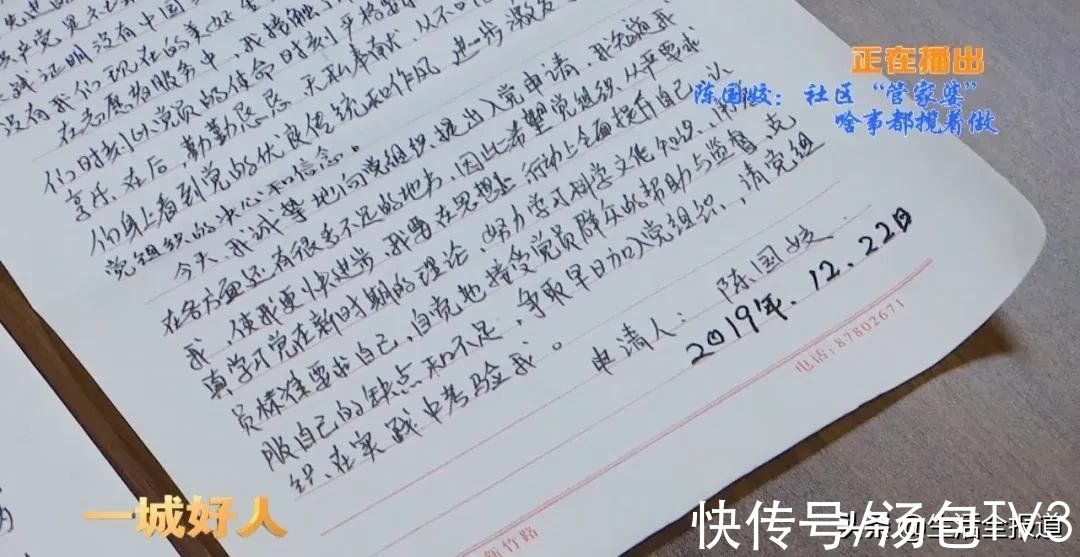 正在播出
陈国姣：社区“管家婆”
啥事都揽着做
共产党是
实践证明没有中国
没有我们现在的美好生
在志愿者服务中,我接触了
们时刻以党员的使命时刻严格
享乐在后,勤勤恳恳 无私奉献,从不
们身上看到党的优良传统和作风 进一步激发
党组织的决心和信念。
今天,我诚挚地向党组织提出入党申请,我知道我
在各方面还有很多不足的地方,因此希望党组织从严要求
我,使我更快进步,我要在思想上 行动上全面提升自己,认
真学习党在新时期的理论,努力学习科学文化知识,
员标准要求自己,自觉地接受党员群众的帮助与监督,克
服自己的缺点和不足,争取早日加入党组织,请党组
织在实践中考验我。
申请人：陈国姣
2019年.12.22日
新竹路
电话:87802671
一城好人
快传号/汤包TV3